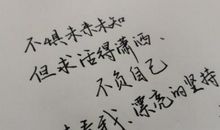 不惧未来未知
但求活得潇洒、
不负自己
我、漂亮的坚持